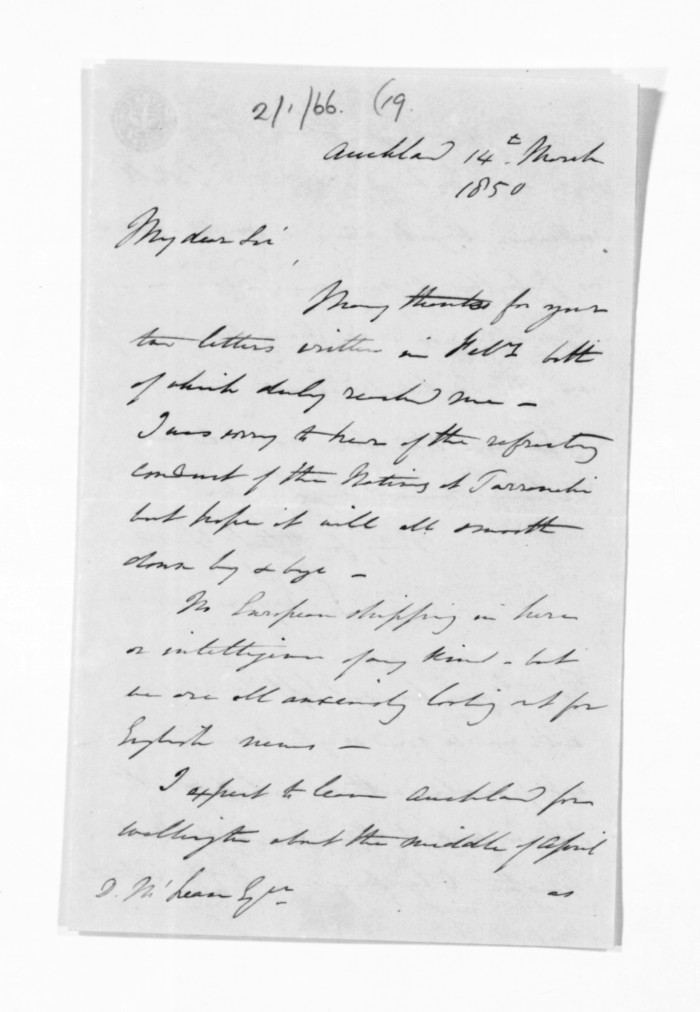 2/1/66. (19.
Auckland 14th. March
1850
My dear Sir,
Many thanks for your
two letters written in Feby. both
of which duly reached me -
I was sorry to hear of the refractory
conduct of the Natives at Tarranaki
but hope it will all smooth
down by & bye -
No European shipping in here
or intelligence of any kind - but
we are all anxiously looking out for
English news -
I expect to leave Auckland for
Wellington about the middle of April
D. McLean Esqr.
as